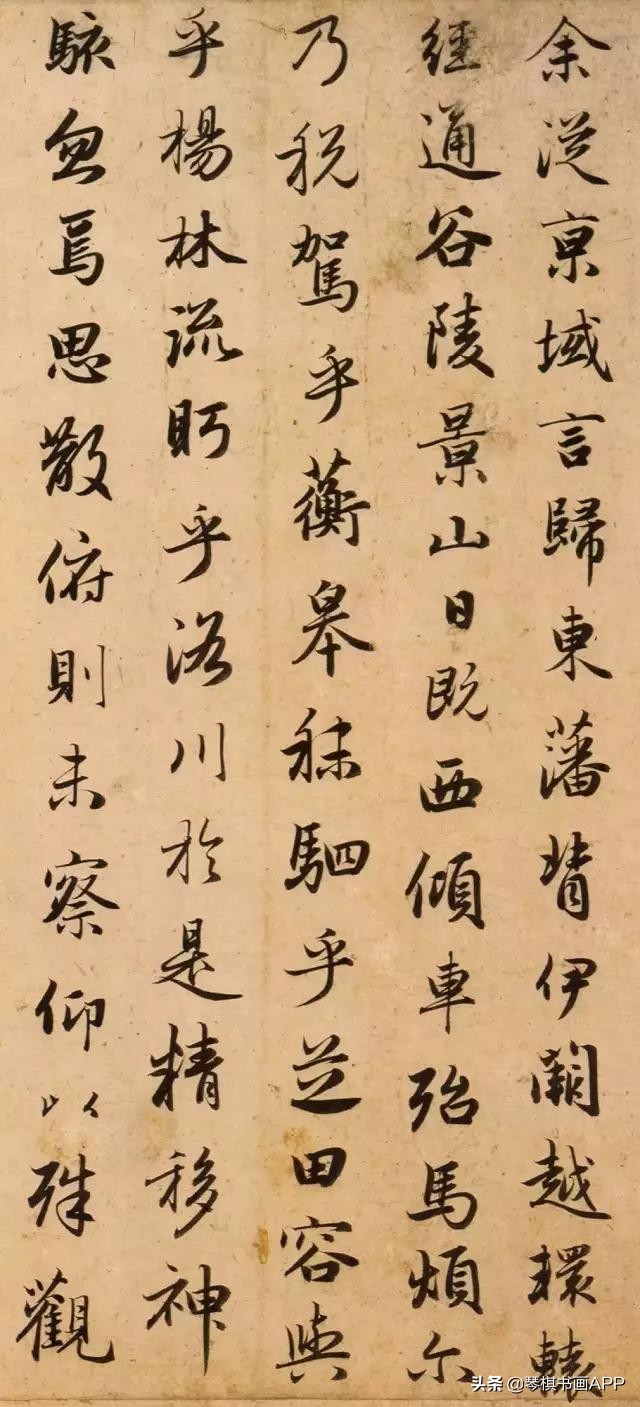 余從京域言歸東藩背伊闕越轘轅
經通谷陵景山日既西傾車殆馬煩尒
乃税駕乎蘅皋秣駟乎芝田容與
乎楊林流眄乎洛川於是精移神
駭忽焉思散俯則未察仰以殊觀
头条 @琴棋书画APP